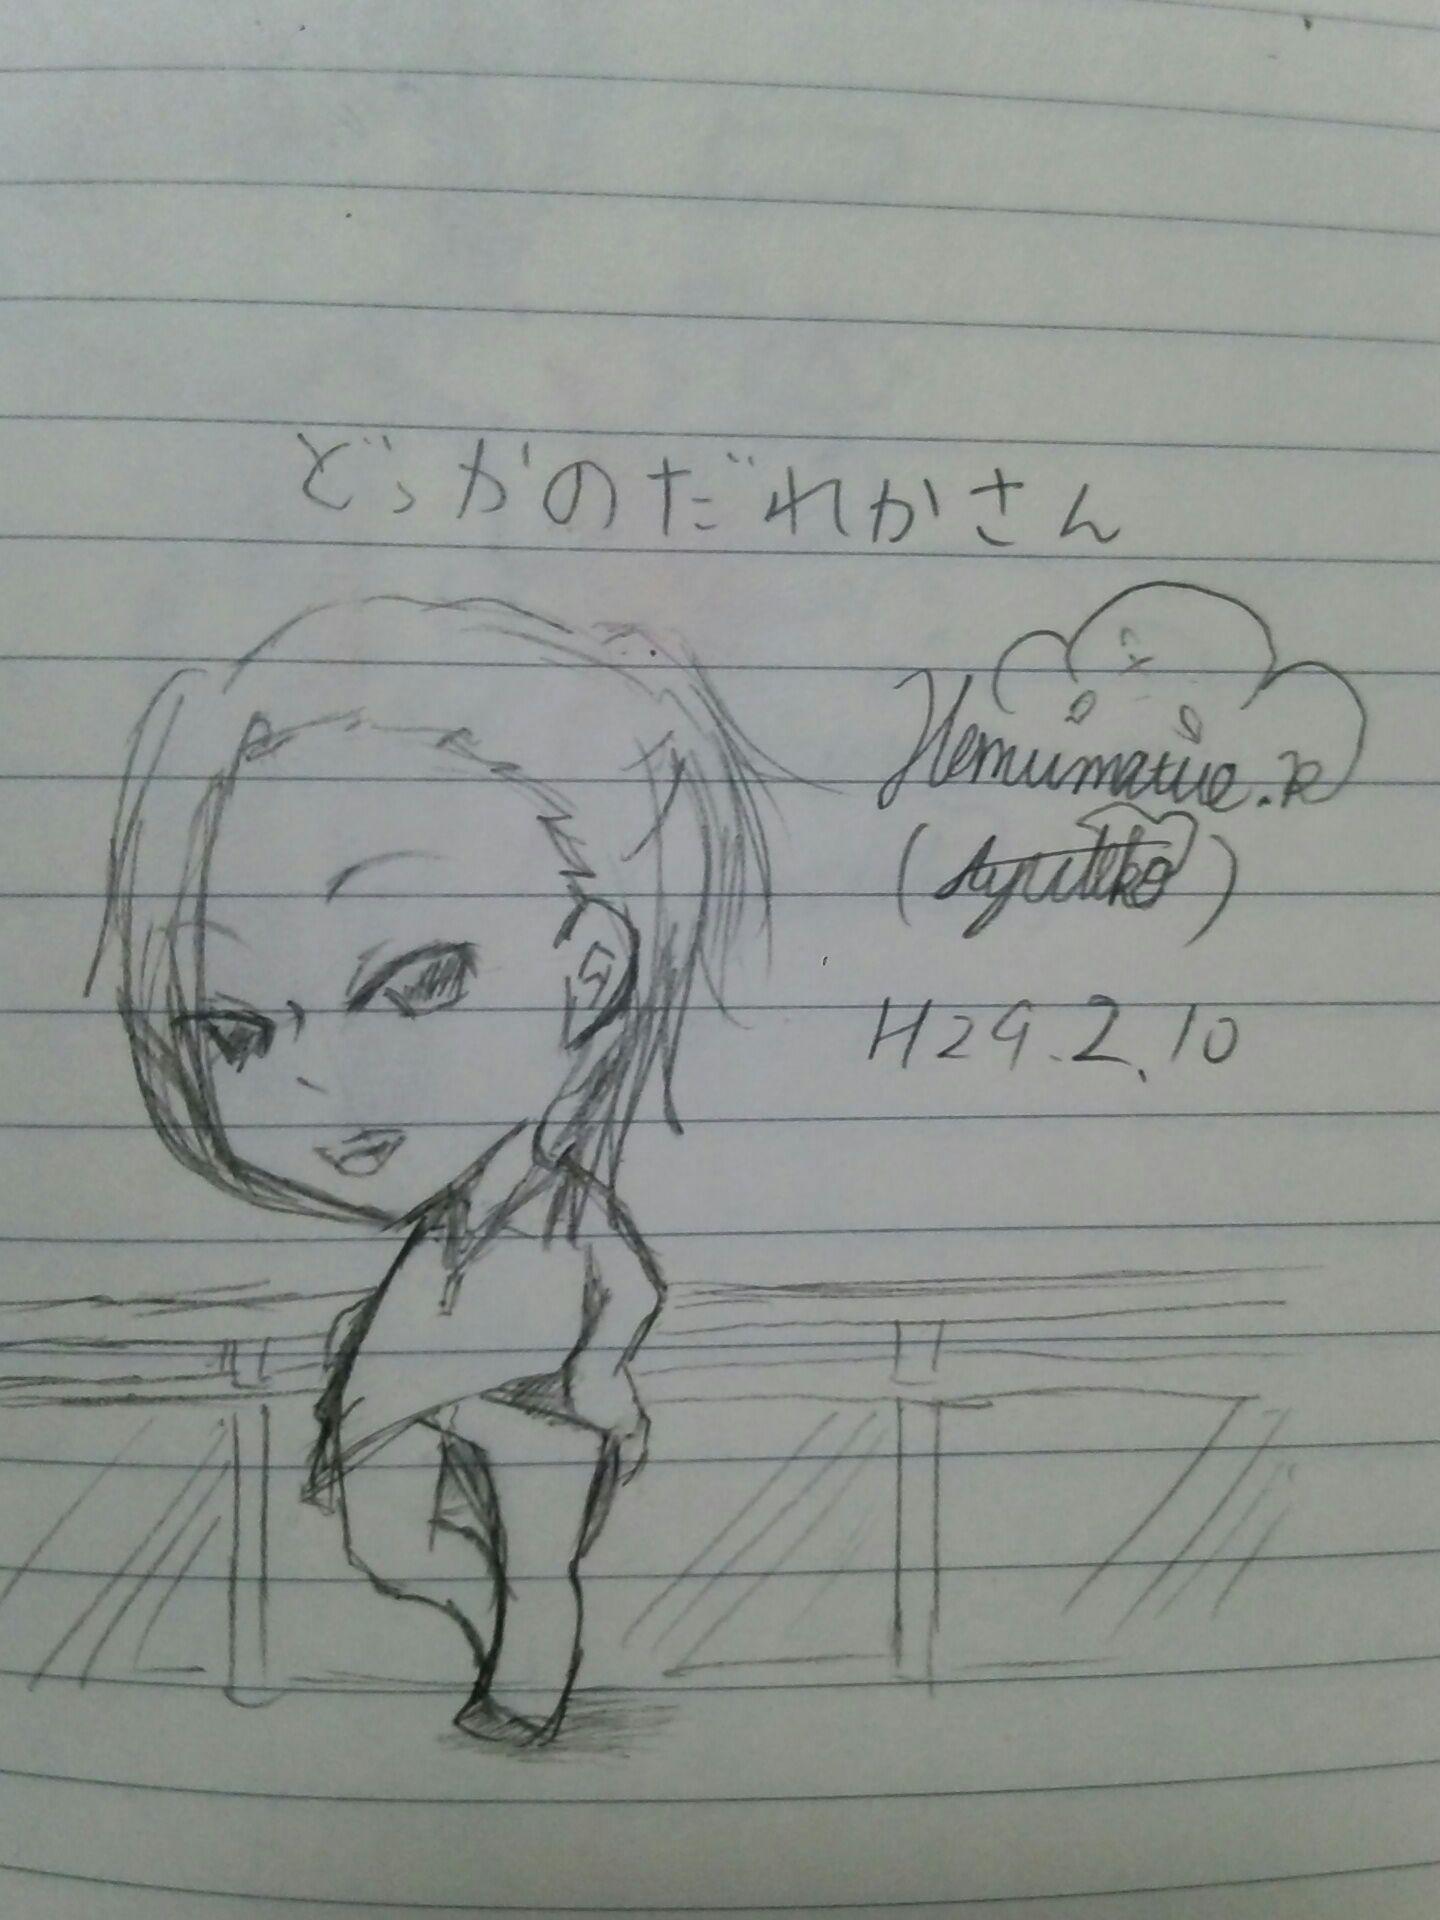 どっかのだれかさん
Hemumatue.R
(Ayuteko)
H29.2.10